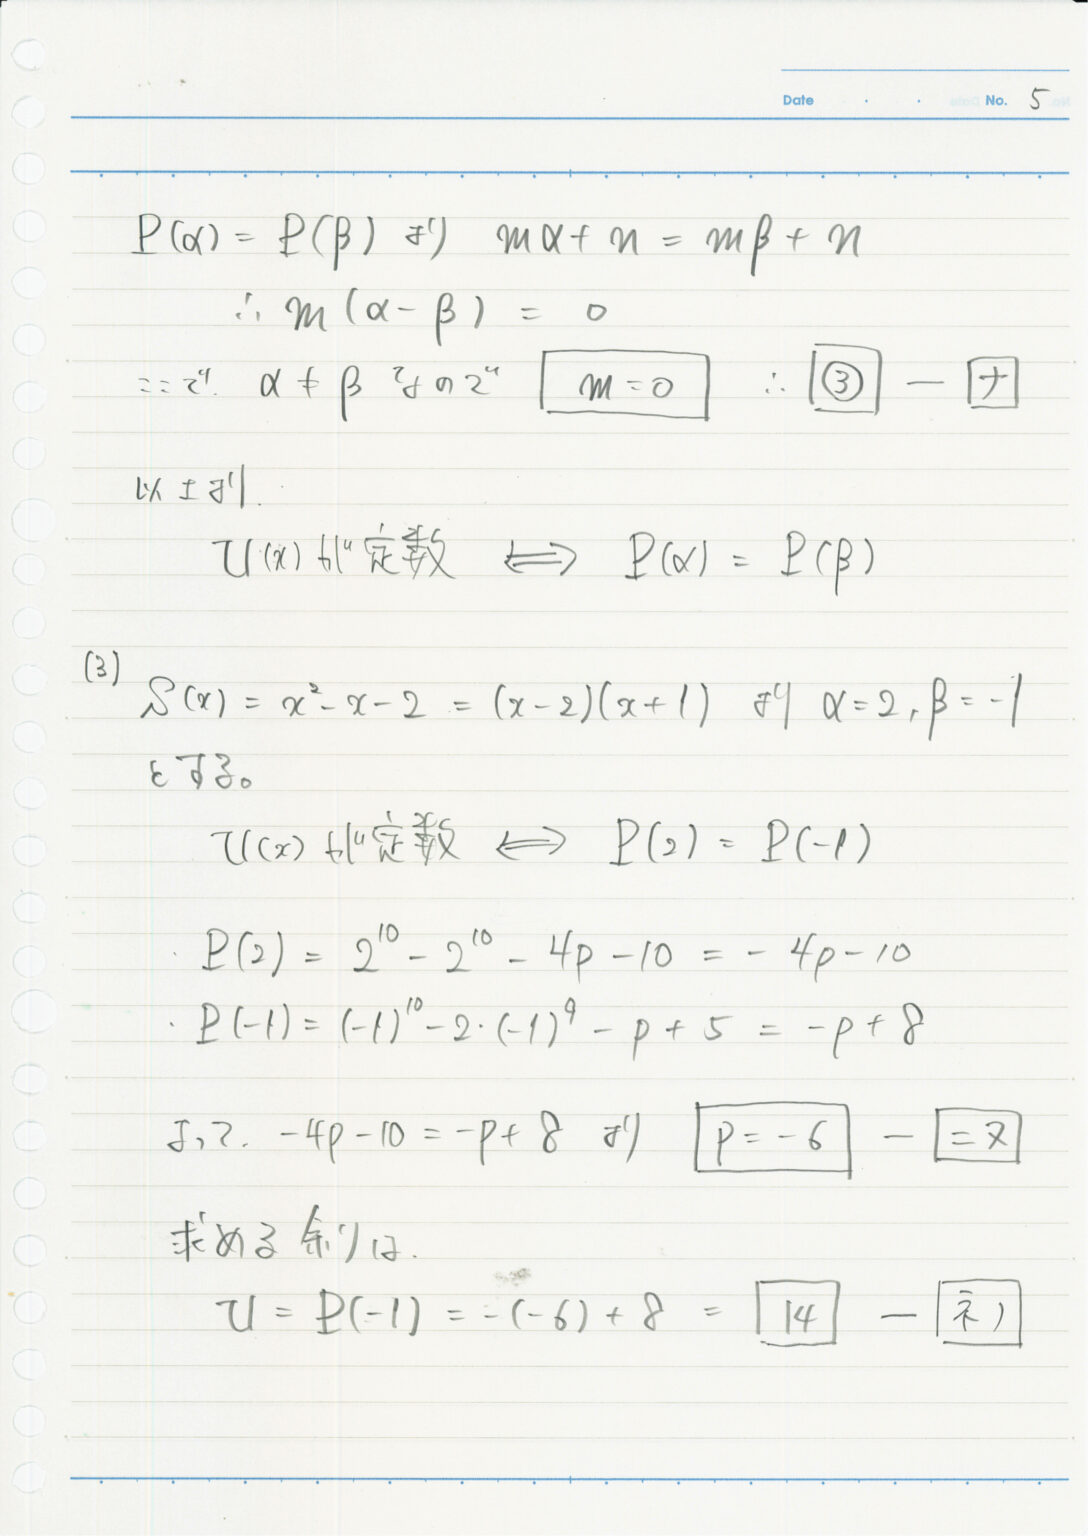 Date ・ ・ No. 5
P(α) = P(β) より mα + n = mβ + n
∴ m(α - β) = 0
ここで、α ≠ β なので m = 0 ∴ ③ — ナ
以上より、
U(x) が定数 ⟺ P(α) = P(β)
(3)
S(x) = x² - x - 2 = (x - 2)(x + 1) より α = 2, β = -1
とする。
U(x) が定数 ⟺ P(2) = P(-1)
・P(2) = 2¹⁰ - 2¹⁰ - 4p - 10 = - 4p - 10
・P(-1) = (-1)¹⁰ - 2・(-1)⁹ - p + 5 = -p + 8
よって、-4p - 10 = -p + 8 より p = -6 — ニヌ
求める余りは、
U = P(-1) = -(-6) + 8 = 14 — ネノ